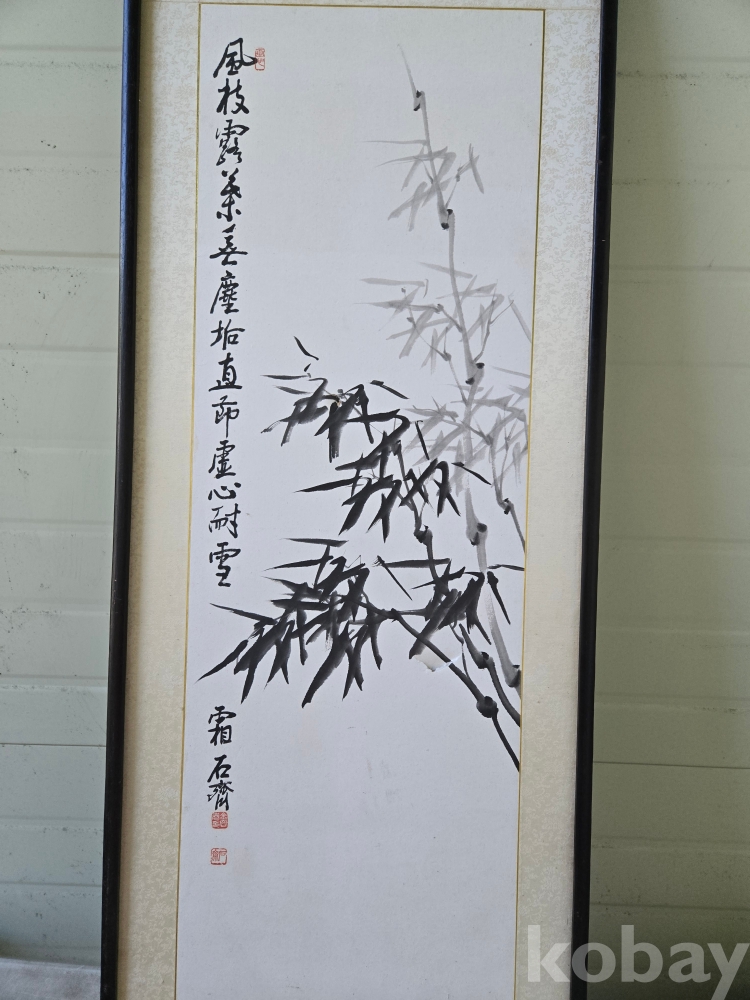 風枝露葉無塵垢直節虛心耐雪
霜 石濟
kobay